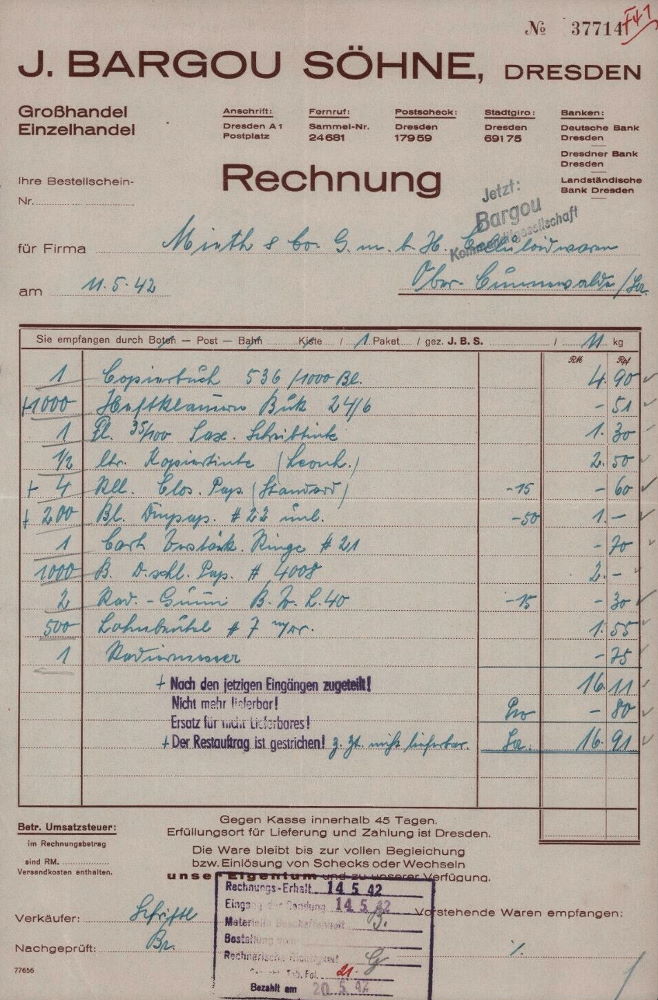 № 37714
J. BARGOU SÖHNE, DRESDEN
Großhandel
Einzelhandel
Anschrift:
Dresden A 1
Postplatz
Fernruf:
Sammel-Nr.
24681
Postscheck:
Dresden
17959
Stadtgiro:
Dresden
69175
Banken:
Deutsche Bank
Dresden
Dresdner Bank
Dresden
Landständische
Bank Dresden
Ihre Bestellschein-
Nr.
Rechnung
Jetzt:
Bargou
Kommanditgesellschaft
für Firma Mieth & Co. G.m.b.H. Celluloidwaren
am 11.5.42 Ober-Cunnewalde /Sa.
Sie empfangen durch Boten — Post — Bahn Kiste / 1 Paket / gez. J. B. S. / 11 kg
RM Rpf
1 Copierbuch 536 /1000 Bl. 4.90
+1000 Heftklammern 24/6 -.51
1 Fl. Schreibtinte 1.30
1/2 ltr. Kopiertinte (Leonh.) 2.50
+ 4 Rll. Clos. Pap. (Standard) -15 -.60
+ 200 Bl. # 22 -50 1.-
1 Cart. Ringe # 21 -.70
1000 B. D.schl. Pap. # 4008 2.-
2 Rad.-Gummi B.W. L. 40 -15 -.30
500 Lohnbeutel # 7 1.55
1 Radiermesser -.75
16.11
+ Nach den jetzigen Eingängen zugeteilt!
Nicht mehr lieferbar!
-.80
Ersatz für nicht Lieferbares!
+ Der Restauftrag ist gestrichen! z. Zt. nicht lieferbar. Sa. 16.91
Betr. Umsatzsteuer:
im Rechnungsbetrag
sind RM.
Versandkosten enthalten.
Gegen Kasse innerhalb 45 Tagen.
Erfüllungsort für Lieferung und Zahlung ist Dresden.
Die Ware bleibt bis zur vollen Begleichung
bzw. Einlösung von Schecks oder Wechseln
unser Eigentum und zu unserer Verfügung.
Rechnungs-Erhalt 14 5 42
Eingang der Sendung 14 5 42
Materielle Beschaffenheit B.
Bestellung
Rechnerische Richtigkeit
21.
Bezahlt am 20. 5. 42
Verkäufer:
Nachgeprüft: Br.
Vorstehende Waren empfangen:
77656